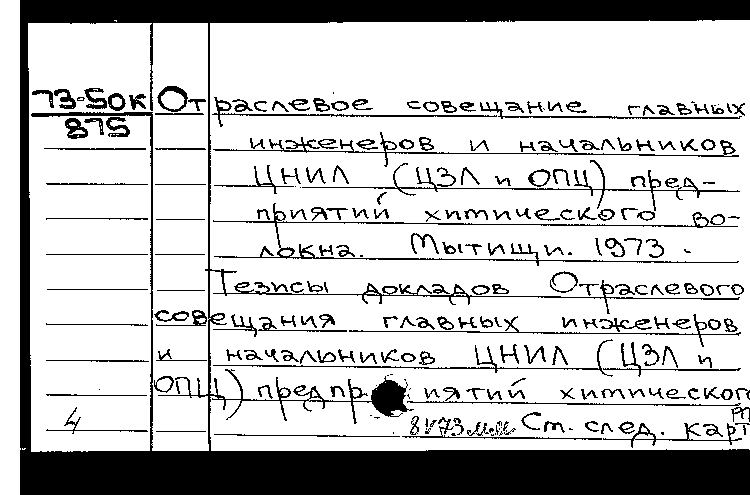 73-50к Отраслевое совещание главных
875
инженеров и начальников
ЦНИЛ (ЦЗЛ и ОПЦ) пред-
приятий химического во-
локна. Мытищи. 1973.
Тезисы докладов Отраслевого
совещания главных инженеров
и начальников ЦНИЛ (ЦЗЛ и
ОПЦ) предприятий химического
4 8V73мм Ст. след. карт